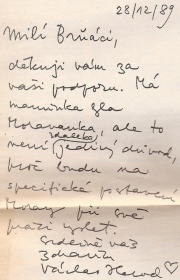 28/12/89
Milí Brňáci,
děkuji vám za
vaši podporu. Má
maminka byla
Moravanka, ale to
zdaleka
není jediný důvod,
proč budu na
specifické postavení
Moravy při své
práci myslet.
Srdečně váš
zdravím
Václav Havel